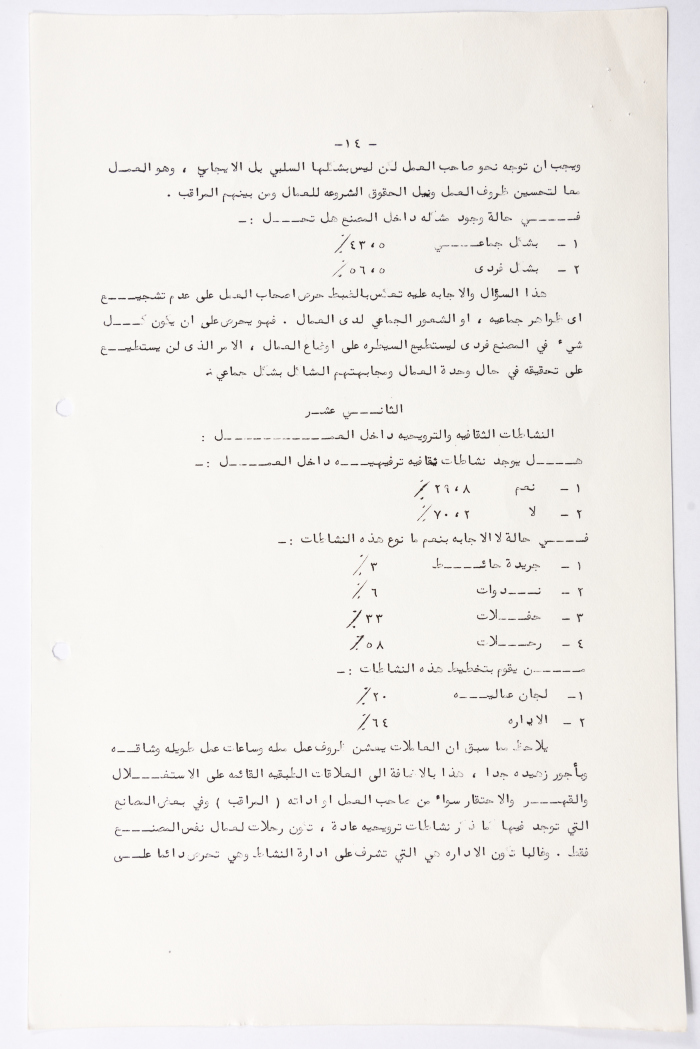 -١٤ -
ويجب ان توجه نحو صاحب العمل لكن ليس بشكلها السلبي بل الايجابي ، وهو العمـل
معا لتحسين ظروف العمل ونيل الحقوق الشروعه للعمال ومن بينهم المراقب .
فــــي حالة وجود مشكله داخل المصنع هل تحـــل :ـ
١ - بشكل جماعــــي ٤٣،٥٪
٢ - بشكل فردى ٥٦،٥٪
هذا السؤال والاجابه عليه تعكس بالضبط حرص اصحاب العمل على عدم تشجيـــع
اى ظواهر جماعيه ، او الشعور الجماعي لدى العمال . فهو يحرص على ان يكون كـــل
شيء في المصنع فردى ليستطيع السيطره على اوضاع العمال ، الامر الذى لن يستطيـــع
على تحقيقه في حال وحدة العمال ومجابهتهم المشاكل بشكل جماعي :ـ
الثانـــي عشـر
النشاطات الثقافيه والترويحيه داخل العمـــــــــل :
هــــل يوجد نشاطات ثقافيه ترفيهيـــه داخل العمـــل :ـ
١ - نعم ٢٩،٨٪
٢ - لا ٧٠،٢٪
فــــي حالة لا الاجابه بنعم ما نوع هذه النشاطات :ـ
١ - جريدة حائـــــط ٣٪
٢ - نـــدوات ٦٪
٣ - حفــلات ٣٣٪
٤ - رحـــلات ٥٨٪
مـــــن يقوم بتخطيط هذه النشاطات :ـ
١- لجان عماليـــه ٢٠٪
٢ - الاداره ٦٤٪
يلاحظ مما سبق ان العاملات يعشن ظروف عمل مله وساعات عمل طويله وشاقــه
وبأجور زهيده جدا ، هذا بالاضافة الى العلاقات الطبقيه القائمه على الاستغـــلال
والقهـــر والاحتقار سواء من صاحب العمل او اداته ( المراقب ) وفي بعض المصانع
التي توجد فيها كما ذكر نشاطات ترويحيه عادة ، تكون رحلات لعمال نفس المصنـــع
فقط . وغالبا تكون الاداره هي التي تشرف على ادارة النشاط وهي تحرص دائما علـــى